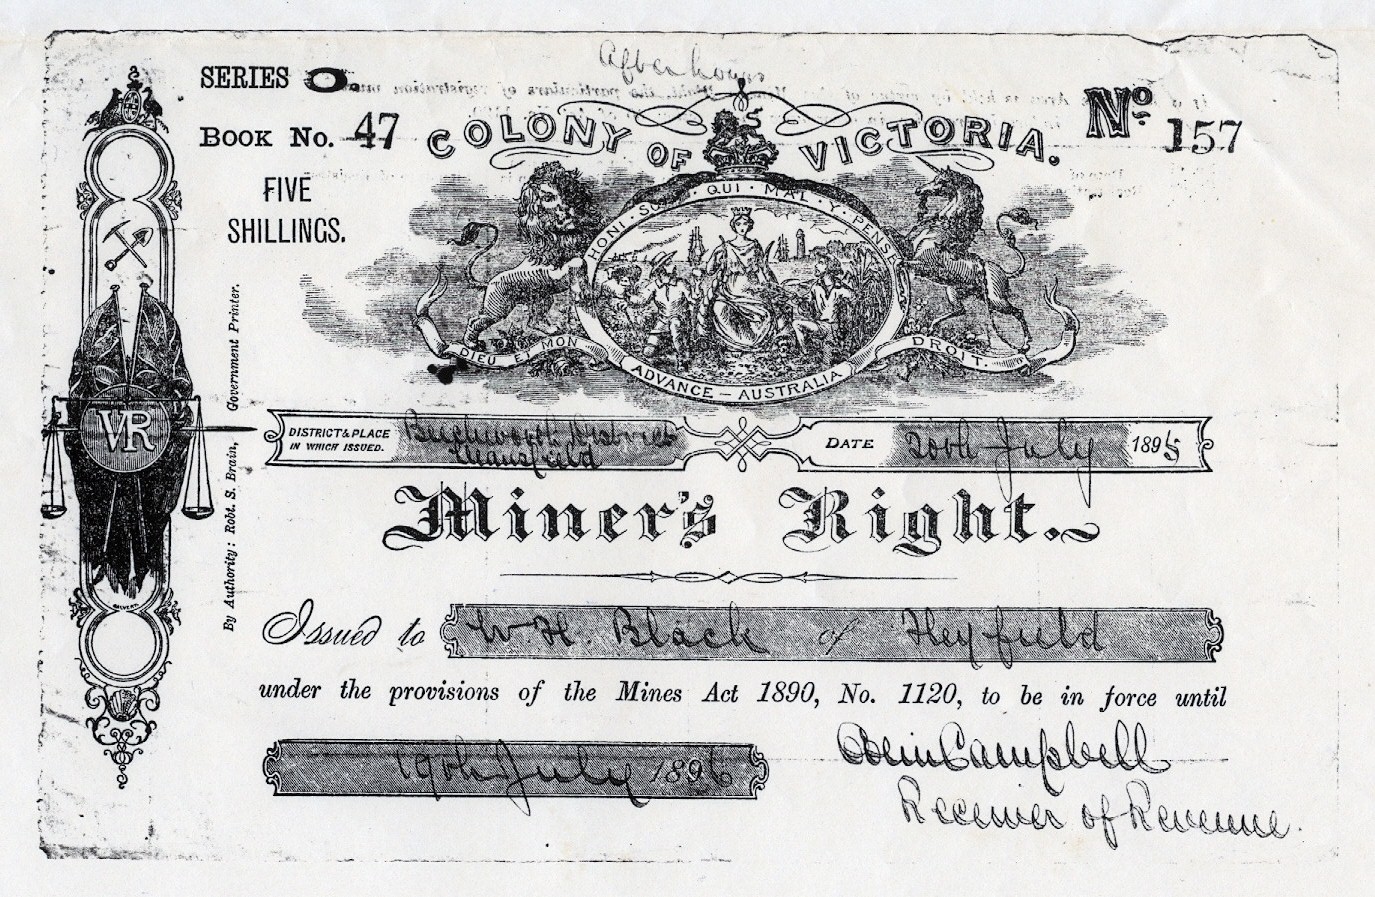 After hours
SERIES O.
BOOK No. 47
COLONY OF VICTORIA.
No. 157
FIVE
SHILLINGS.
HONI · SOIT · QUI · MAL · Y · PENSE
DIEU ET MON DROIT.
ADVANCE – AUSTRALIA
VR
By Authority: Robt. S. Brain, Government Printer.
DISTRICT & PLACE
IN WHICH ISSUED.
Beechworth District
Mansfield
DATE 20th July 1895
Miner's Right.
Issued to W. H. Black of Heyfield
under the provisions of the Mines Act 1890, No. 1120, to be in force until
19th July 1896
Colin Campbell
Receiver of Revenue.